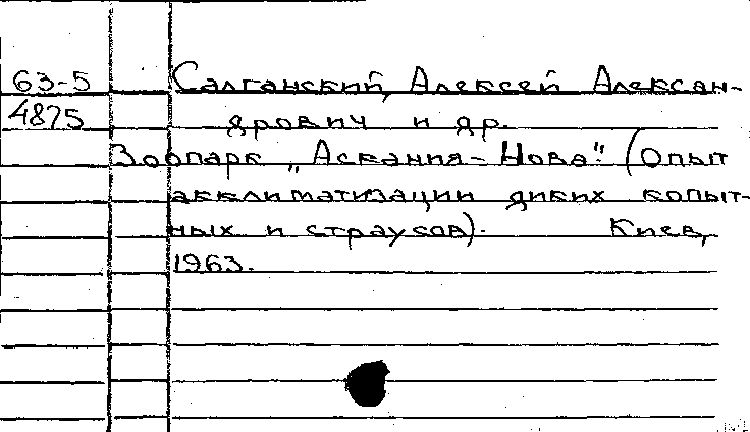 63-5 Салганский, Алексей Алексан-
4875 дрович и др.
Зоопарк „Аскания-Нова". (Опыт
акклиматизации диких копыт-
ных и страусов). Киев,
1963.